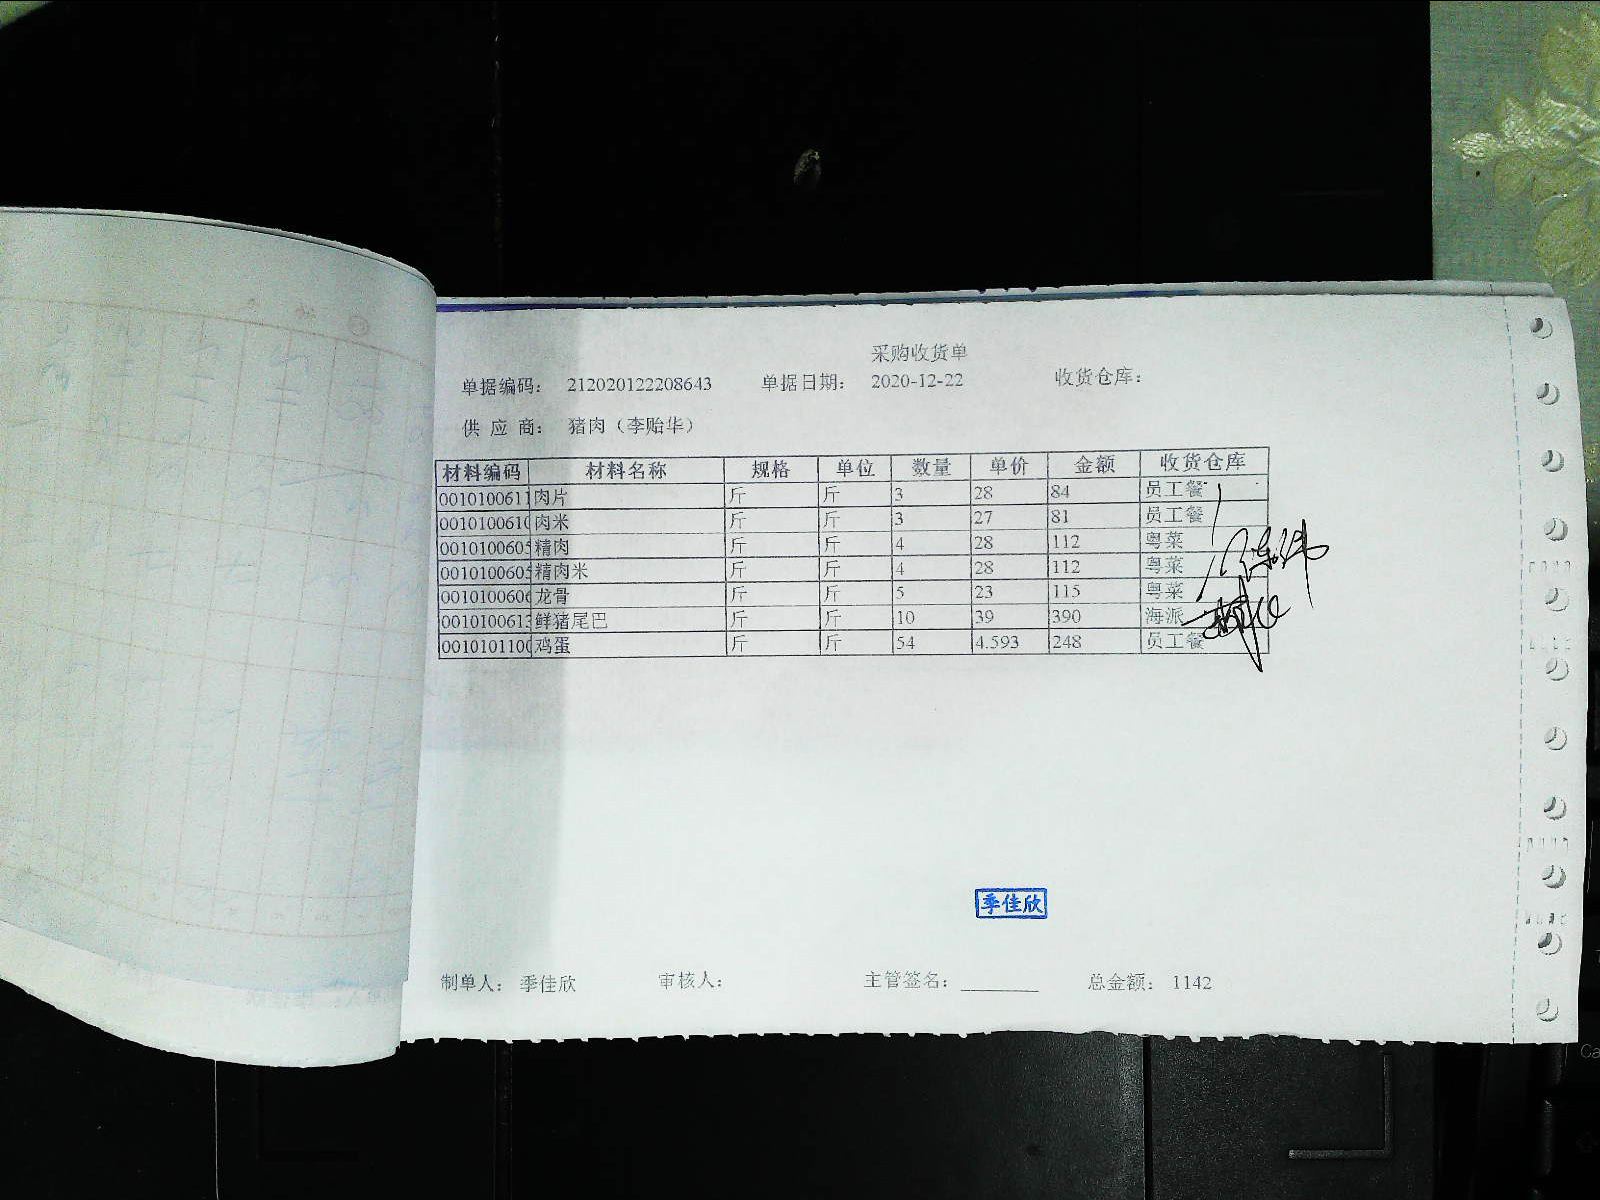 采购收货单
单据编码： 212020122208643 单据日期： 2020-12-22 收货仓库：
供 应 商： 猪肉（李贻华）
材料编码 材料名称 规格 单位 数量 单价 金额 收货仓库
0010100611 肉片 斤 斤 3 28 84 员工餐
001010061 肉米 斤 斤 3 27 81 员工餐
001010060 精肉 斤 斤 4 28 112 粤菜
001010060 精肉米 斤 斤 4 28 112 粤菜
001010060 龙骨 斤 斤 5 23 115 粤菜
001010061 鲜猪尾巴 斤 斤 10 39 390 海派
001010110 鸡蛋 斤 斤 54 4.593 248 员工餐
季佳欣
制单人： 季佳欣 审核人： 主管签名： 总金额： 1142